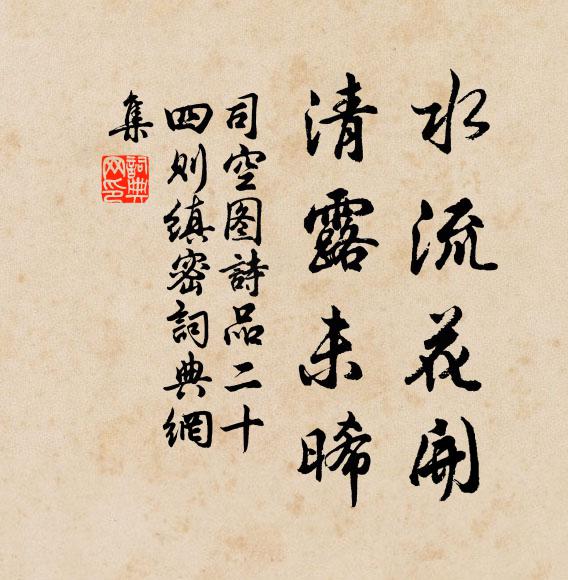 水流花開
清露未晞
司空图詩品二十
四则縝密詞典網
集
詞典
网印